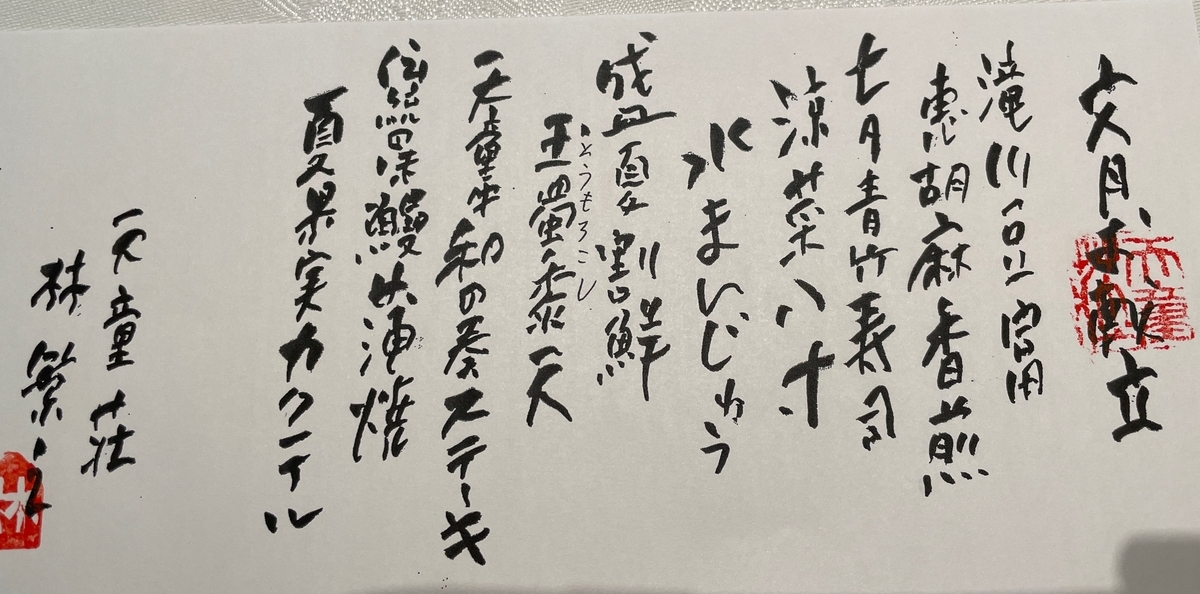 文月お献立
滝川豆腐
恵胡麻香煎
七月青竹寿司
涼菜八寸
水まんじゅう
盛夏割鮮
玉蜀黍天
とうもろこし
天童牛和の奏ステーキ
鰻 蒲焼
夏果実カクテル
天童荘
林 繁
林